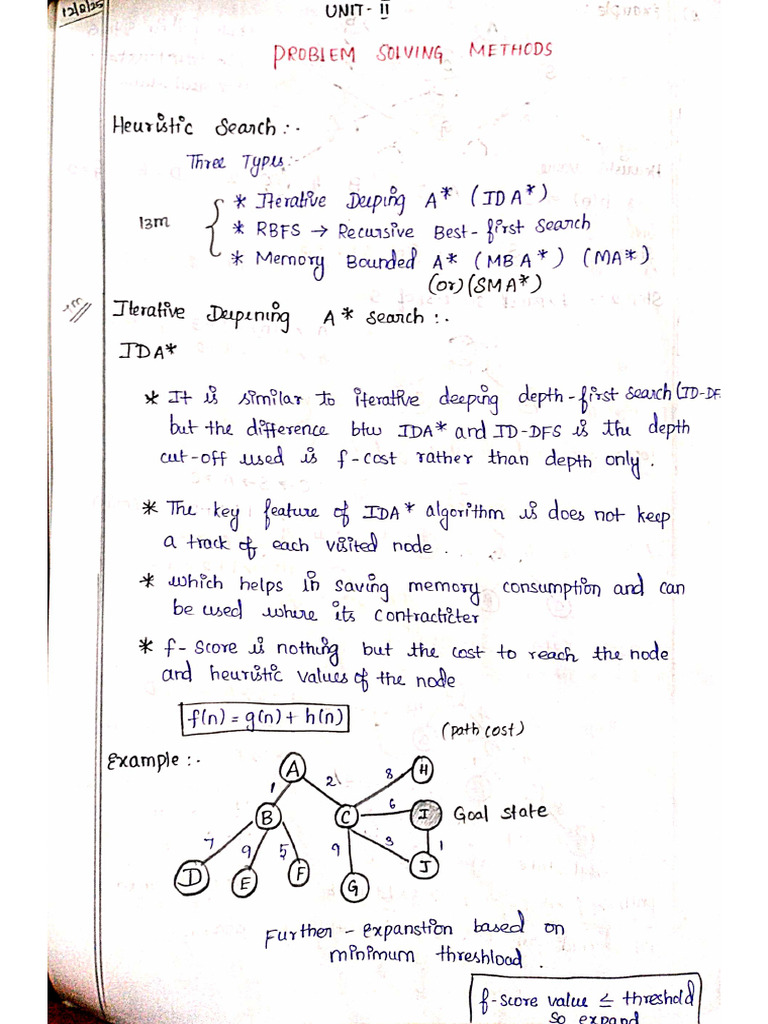 12/8/25
UNIT- II
PROBLEM SOLVING METHODS
Heuristic Search:-
Three Types:-
13m
* Iterative Deeping A* (IDA*)
* RBFS → Recursive Best-first Search
* Memory Bounded A* (MBA*) (MA*)
(or)(SMA*)
Iterative Deepening A* search:-
IDA*
* It is similar to iterative deeping depth-first search (ID-DF
but the difference btw IDA* and ID-DFS is the depth
cut-off used is f-cost rather than depth only.
* The key feature of IDA* algorithm is does not keep
a track of each visited node.
* which helps in saving memory consumption and can
be used where its
* f-score is nothing but the cost to reach the node
and heuristic values of the node
f(n) = g(n) + h(n)
(path cost)
Example:-
A
1
2
8
H
B
C
6
I
Goal state
7
9
5
9
3
1
D
E
F
G
J
Further - expanstion based on
minimum threshload.
f-score value ≤ threshold
so expand